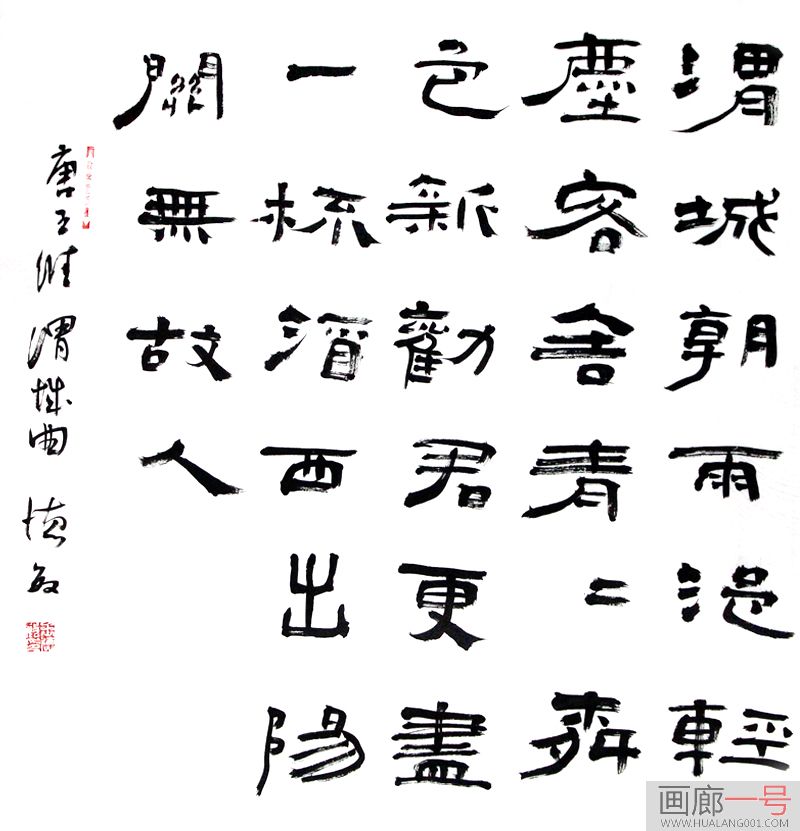 渭城朝雨浥輕
塵客舍青〻柳
色新勸君更盡
一杯酒西出陽
關無故人
唐王維渭城曲
画廊一号
WWW.HUALANG001.COM